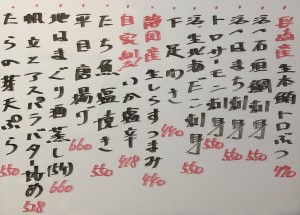 長崎産生本鮪トロぶつ 770
活〆石垣鯛刺身 550
活〆いさき刺身 550
トロサーモン刺身 550
活〆生地あだこ刺身 550
下足わさ 440
静岡産生しらすつまみ 440
自家製いか塩辛 418
たち魚塩焼き 550
平目唐揚げ 660
地はまぐり酒蒸し(5ケ) 660
帆立とアスパラバター炒め 528
たらの芽天ぷら 550